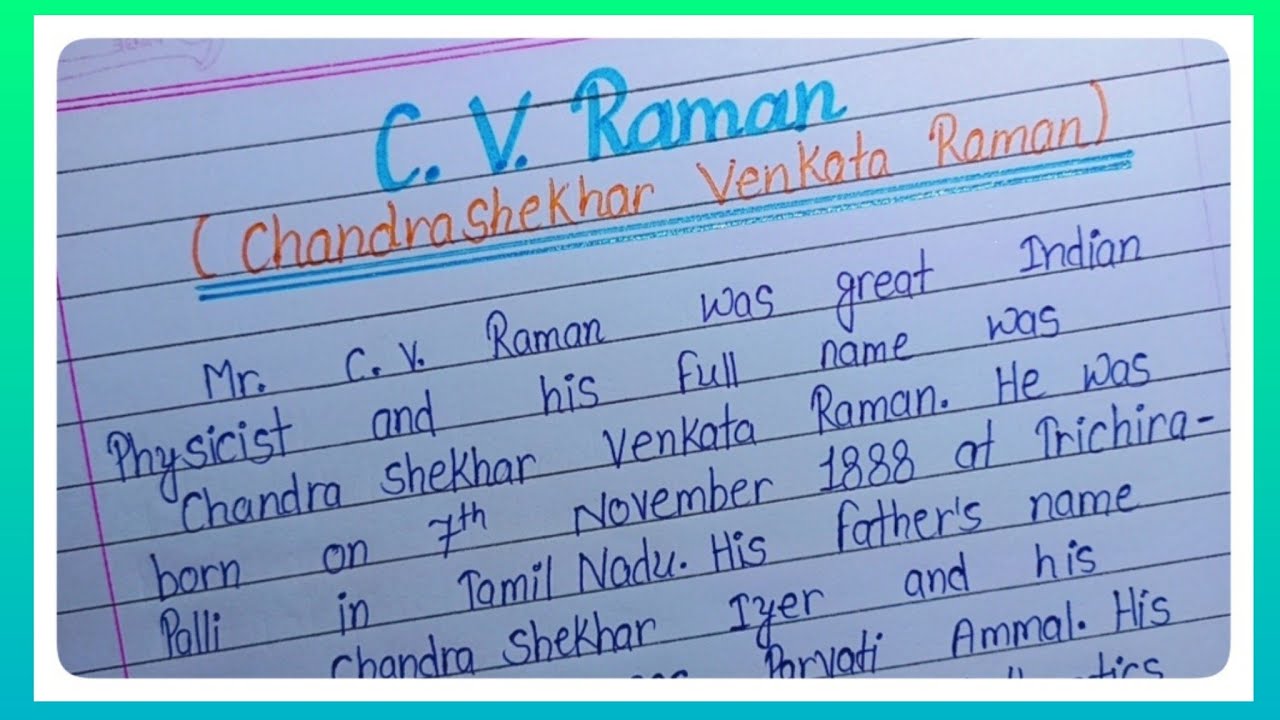 C. V. Raman
(Chandrashekhar Venkata Raman)
Mr. C. V. Raman was great Indian
Physicist and his full name was
Chandra shekhar Venkata Raman. He was
born on 7th November 1888 at Trichira-
Palli in Tamil Nadu. His father's name
Chandra shekhar Iyer and his
Parvati Ammal. His